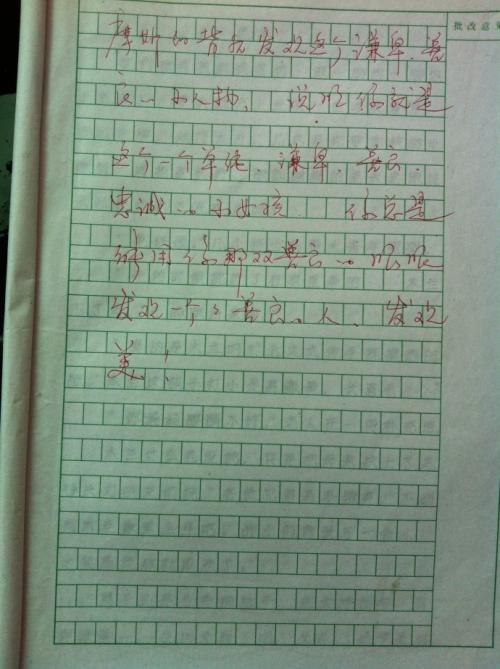 批改意见
摩斯的背后发现这个谦卑、善
良的小人物,说明你就是
这个一个单纯、谦卑、善良、
忠诚的小女孩 你总是
能用你那双善良的眼眼
发现一个个善良的人、发现
美!